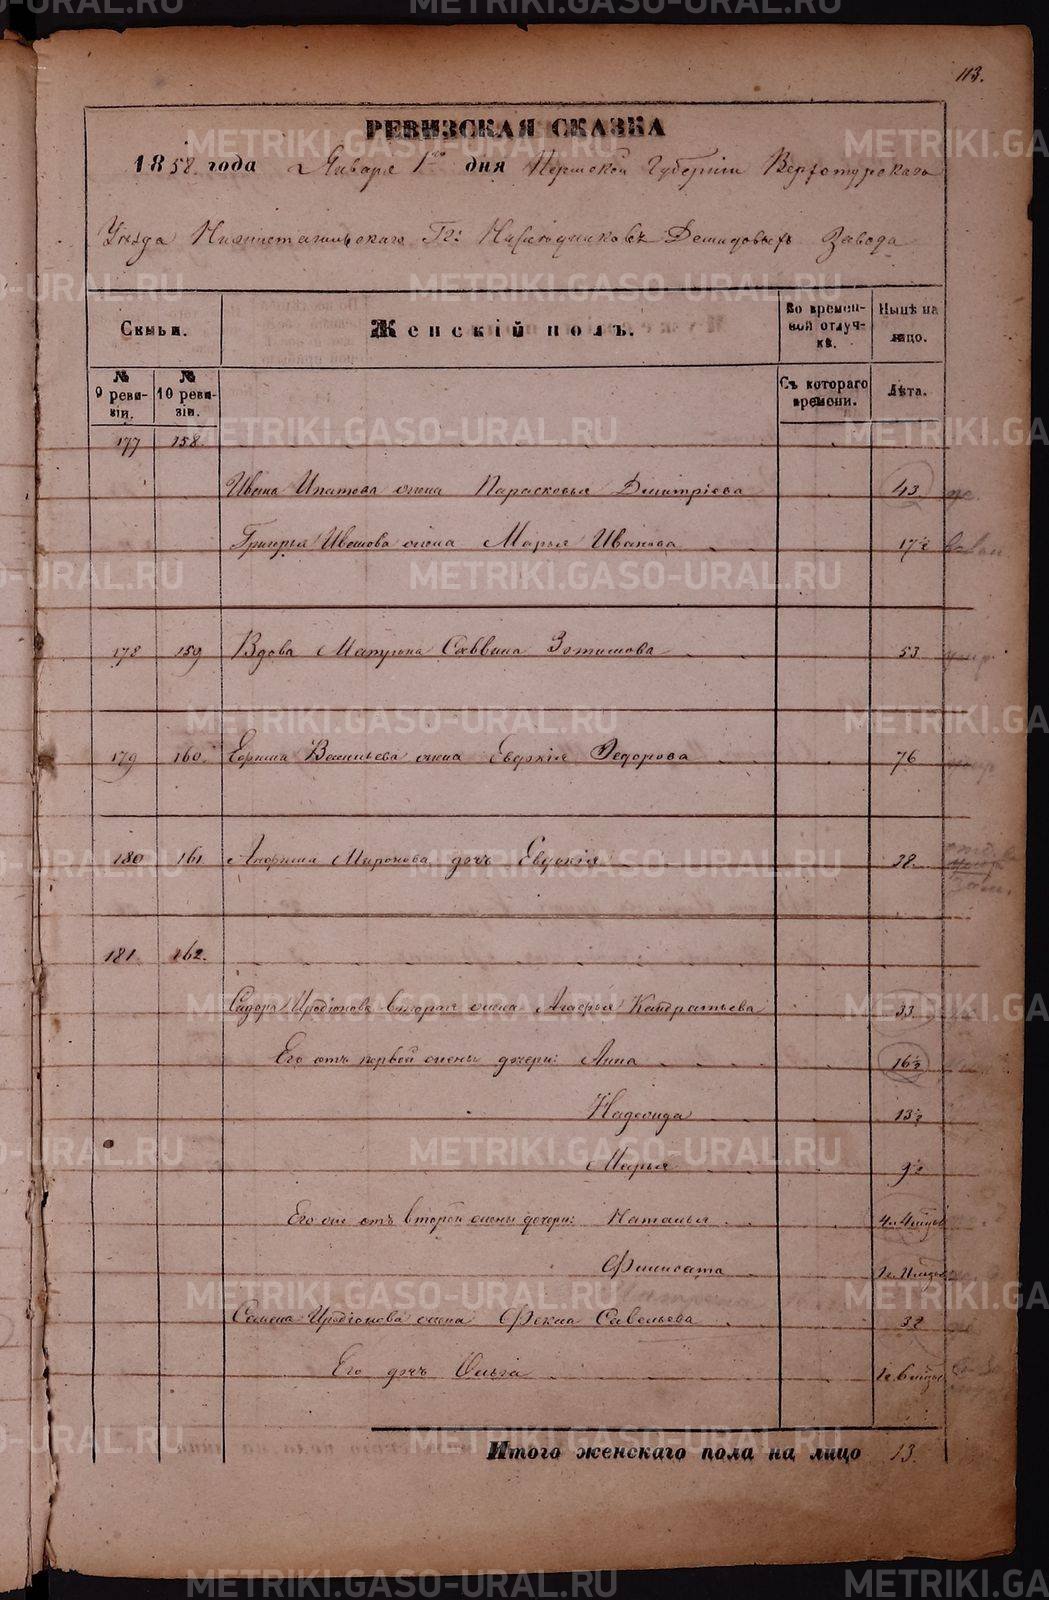 113.
РЕВИЗСКАЯ СКАЗКА
1858 года Января 1го дня Пермской Губернии Верхотурскаго
Уезда Нижнетагильскаго Гг: Наследниковъ Демидовыхъ Завода
Семьи. Женскій полъ. Во временной отлучкѣ. Нынѣ на лицо.
№ 9 ревизіи. № 10 ревизіи. Съ котораго времени. Лѣта.
177 158.
Ивана Ипатова жена Парасковья Дмитріева 43
Григорья Иванова жена Марья Иванова 17½
178 159 Вдова Матрона Саввина Зотикова 53
179 160. Ефима Васильева жена Евдокія Федорова 76
180 161 Миронова дочь Евдокія 38.
181 162.
Сидора Иродіонова вторая жена Агафья Кондратьева 33
Его отъ первой жены дочери: Анна 16½
Надежда 13½
Марья 9½
Его же отъ второй жены дочери: Наталья 4г. 4мѣсц
Фелисата 1г.
Семена Иродіонова жена Фекла Савельева 32
Его дочь Ольга 1г. 6мѣсц
Итого женскаго пола на лицо 13.
METRIKI.GASO-URAL.RU